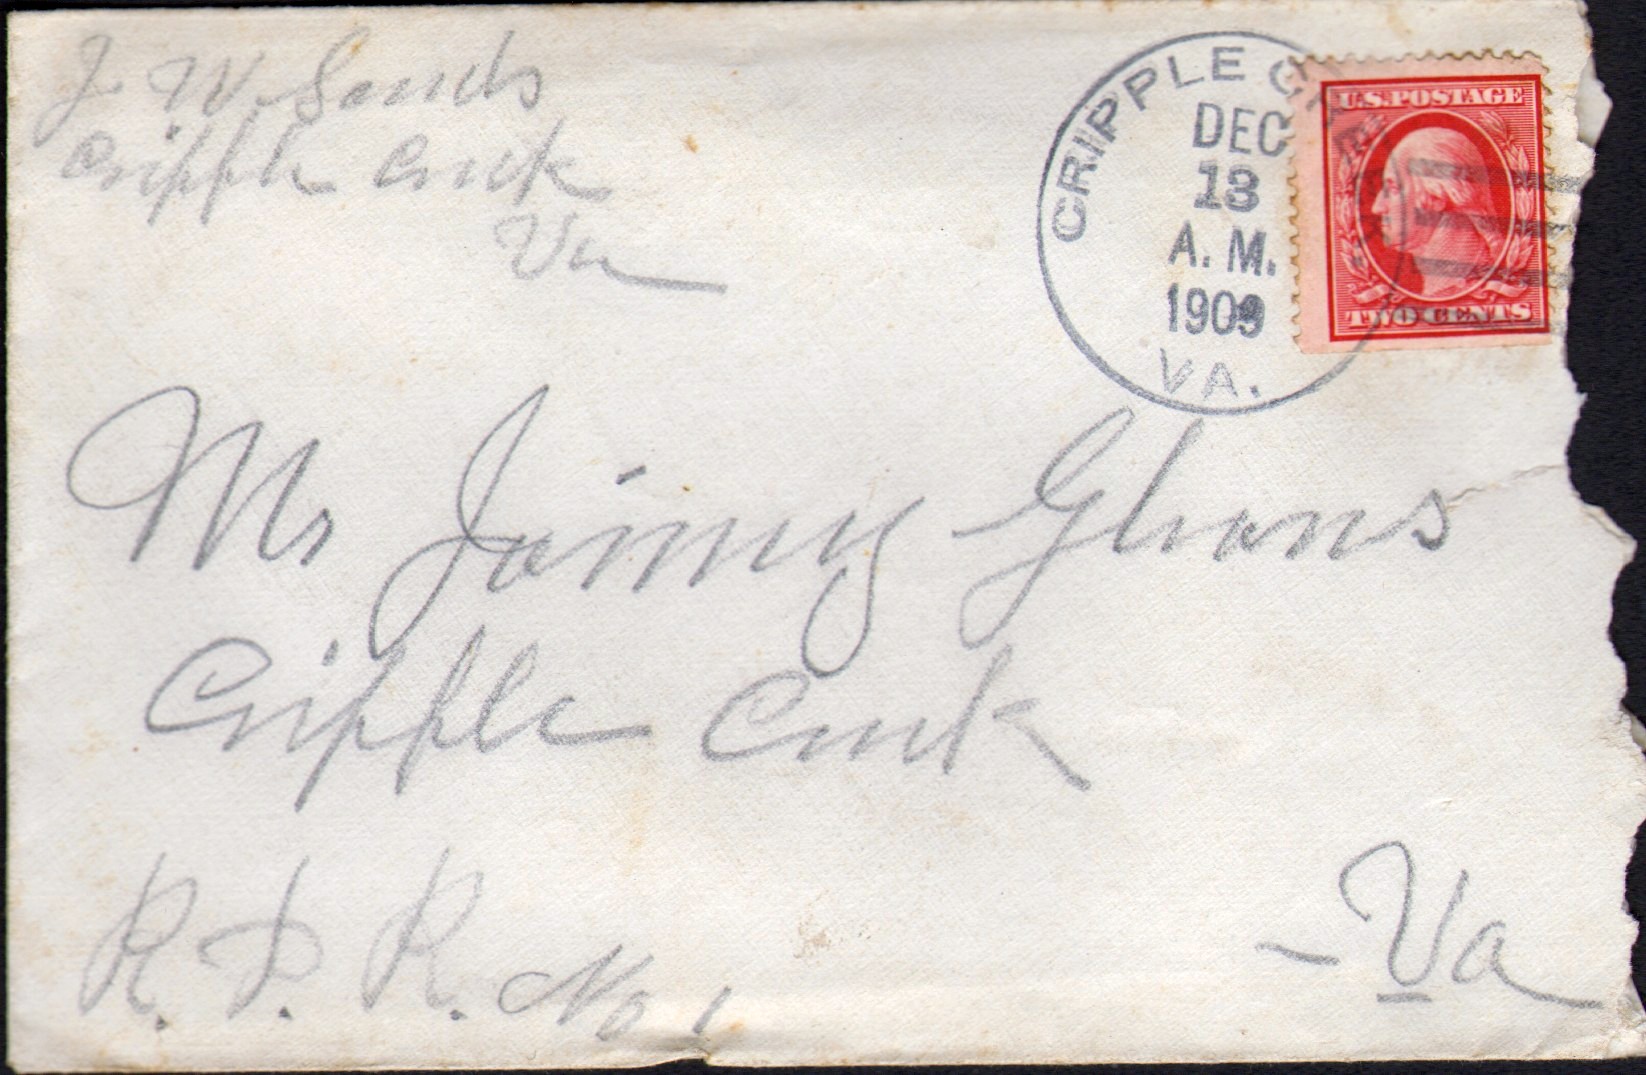 J W Sands
Cripple Creek
Va
CRIPPLE CREEK
DEC
13
A. M.
1909
VA.
U.S. POSTAGE
TWO CENTS
Mr
Cripple Creek
R. F. R. No 1
Va